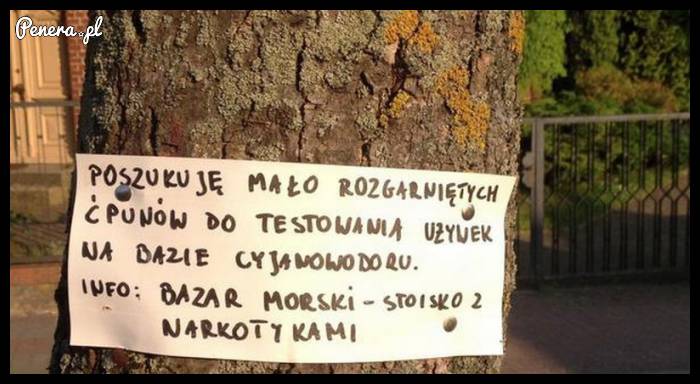 Penera.pl
POSZUKUJĘ MAŁO ROZGARNIĘTYCH
ĆPUNÓW DO TESTOWANIA UŻYWEK
NA BAZIE CYJANOWODORU.
INFO: BAZAR MORSKI - STOISKO Z
NARKOTYKAMI